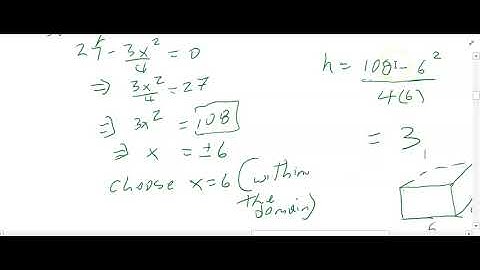 27 - 3x²/4 = 0
⇒ 3x²/4 = 27
⇒ 3x² = 108
⇒ x = ±6
choose x=6 (within the domain)
h = 108 - 6² / 4(6)
= 3